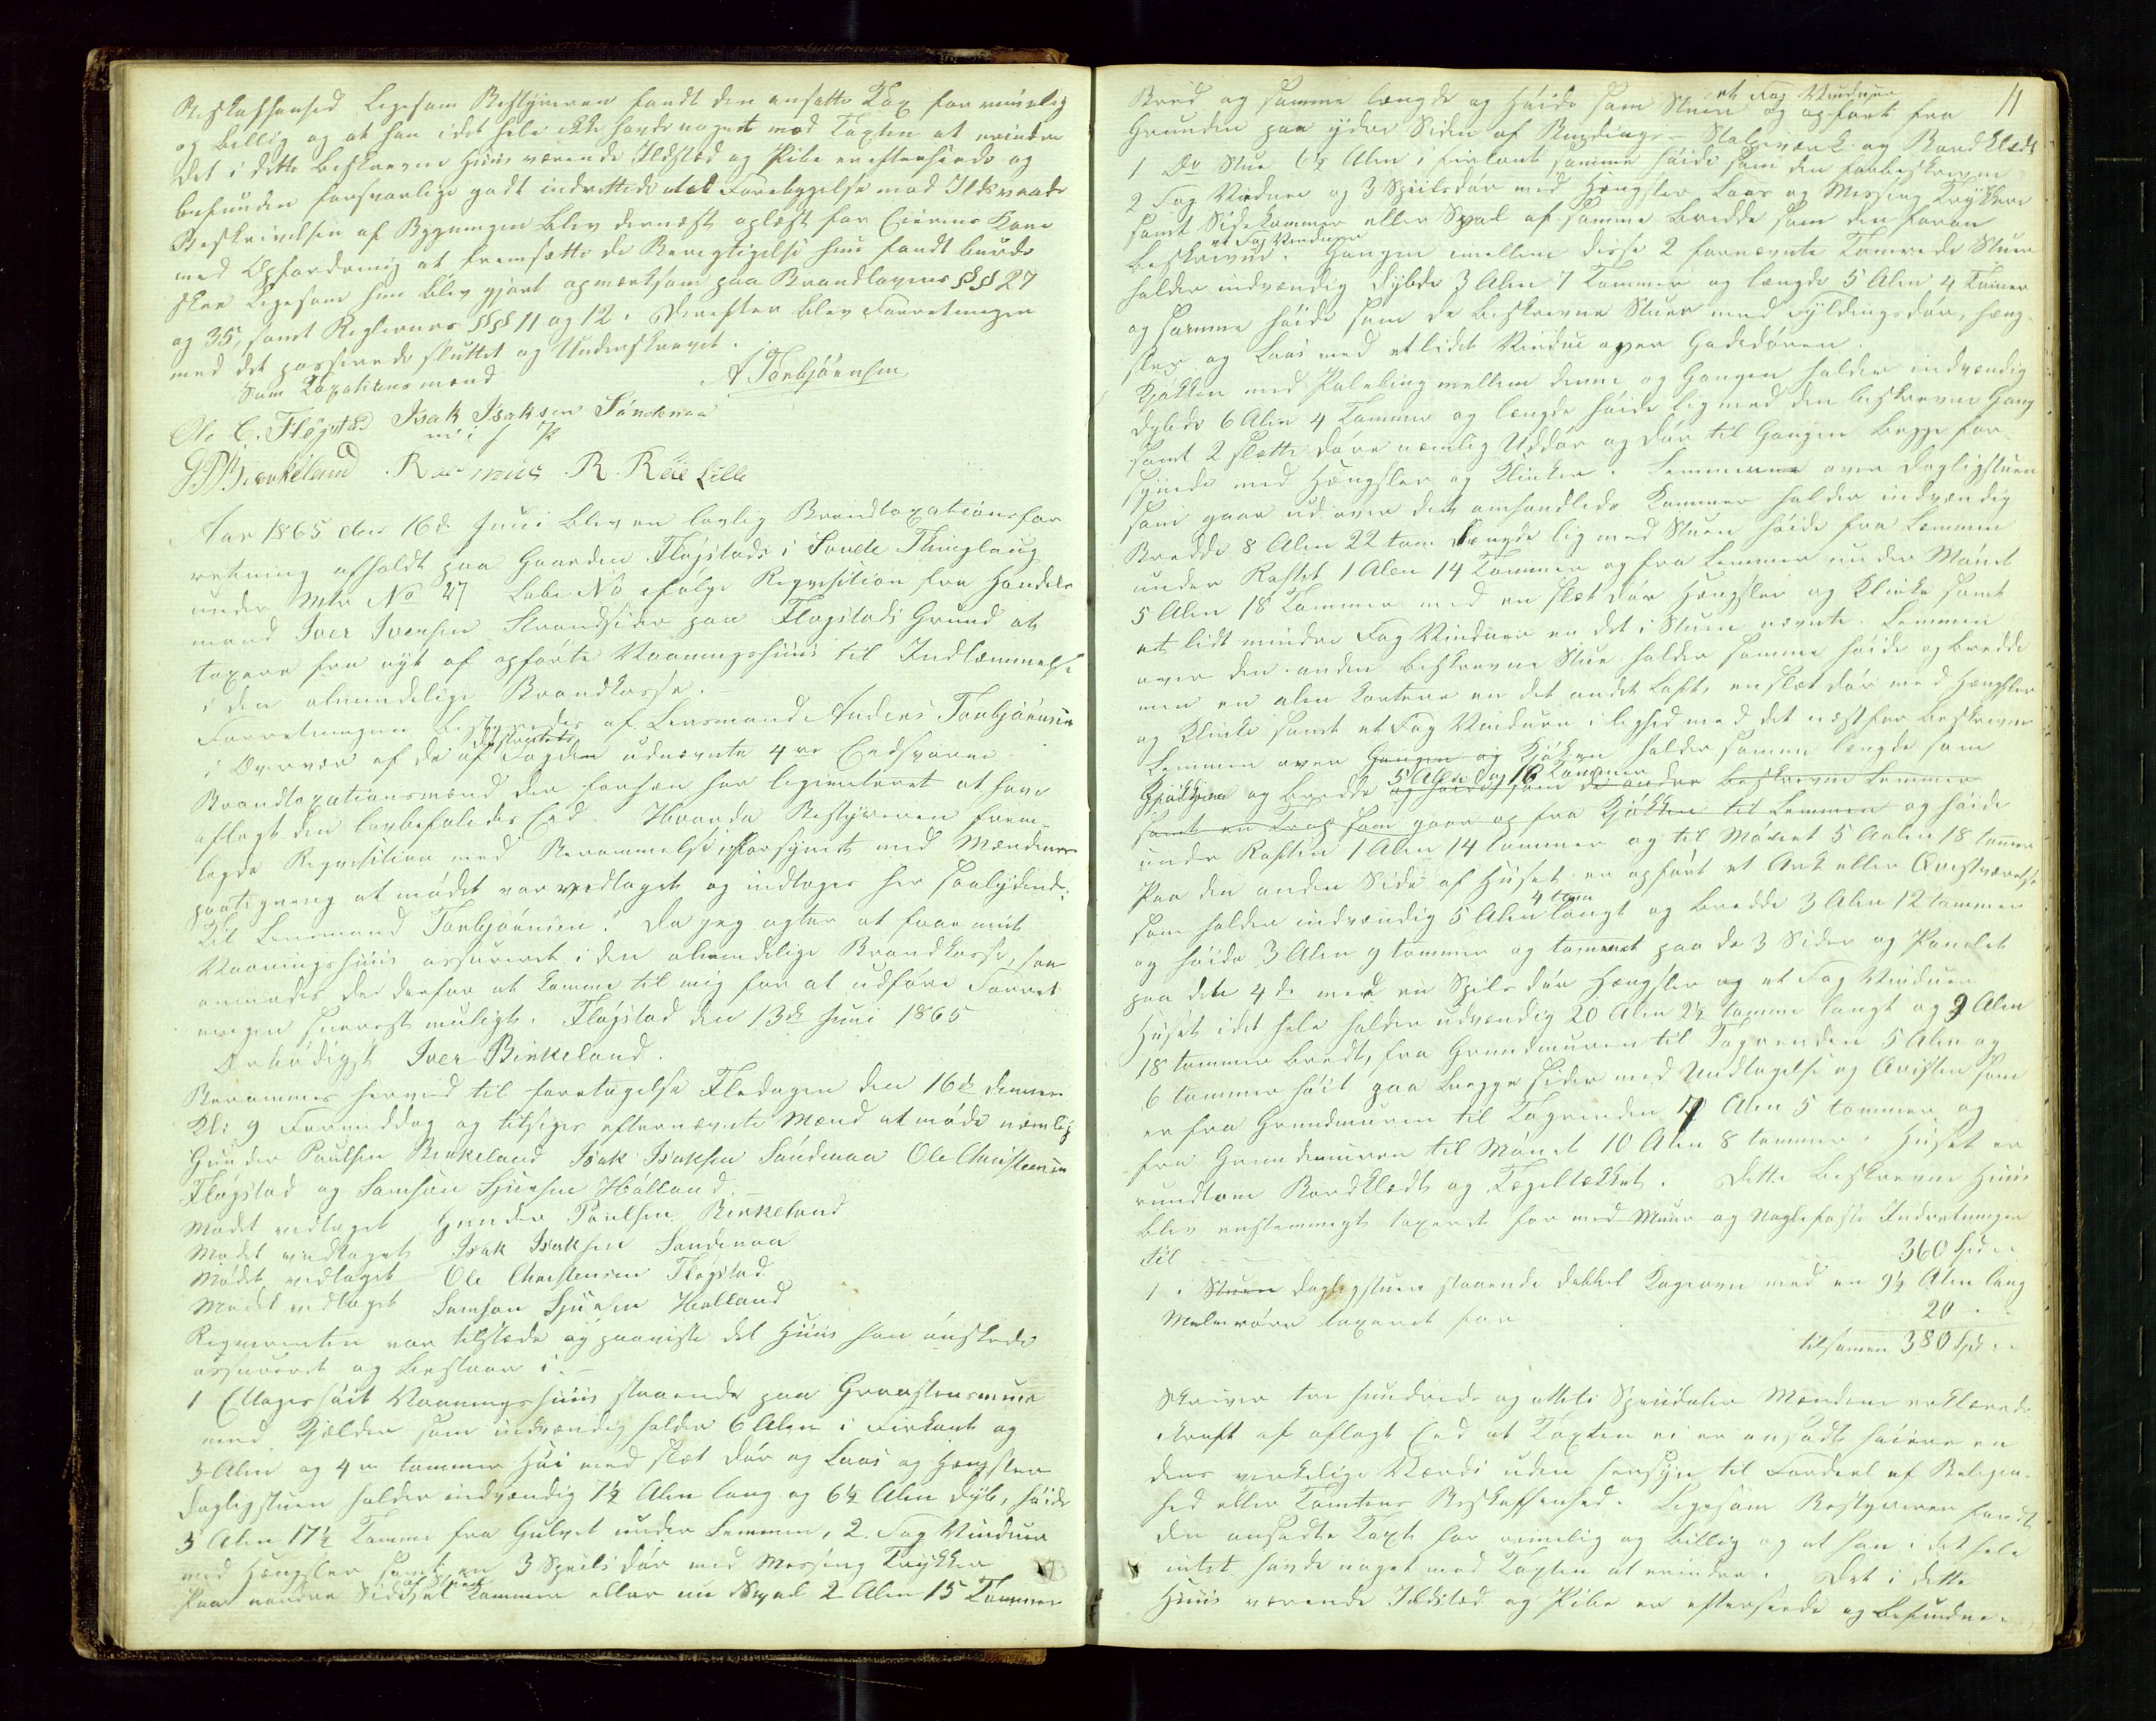 Beskaffenhed Ligesom Bestyreren fandt den ansatte Tax for rimelig
og billig og at han idet hele ikke havde noget mod Taxten at erindre
Det i dette beskrevne Huus værende Ildsted og Pibe er efterseede og
befunden forsvarlige godt indrettede mod Forebyggelse mod Ildsvaade
Beskrivelsen af Bygningen blev dernæst oplæst for Eierens Kone
med Opfordring at fremsætte de Berigtigelse hun fandt burde
skee Ligesom hun blev gjort opmærksom paa Brandlovens §§ 27
og 35, samt Reglernes §§§ 11 og 12. Derefter blev Forretningen
med det passerede sluttet og Underskrevet.
Som Taxationsmænd A Torbjørnsen
Ole C. Fløgstad Isak Isaksen Søndenaa
m f P
G P Birkeland Rasmus R. Røe Lille
Aar 1865 den 16de Juni blev en lovlig Brandtaxationsfor
retning afholdt paa Gaarden Fløgstads i Sovde Thinglaug
under Mtr No 27 Løbe No ifølge Reqvisition fra Handels
mand Iver Iversen Strandsider paa Flogstads Grund at
taxere fra nyt af opførte Vaaningshuus til Indlemmelse
i den almindelige Brandkasse. –
Forretningen bestyredes af Lensmand Anders Torbjørnsen
i Overvær af de af Fogden udnævnte 4re Eedsvorne
Brandtaxationsmænd der forhen har legimiteret at have
aflagt den lovbefalede Ed. Hvorda Bestyreren frem-
lagde Reqvisition med Berammelse forsynet med Mændenes
paategning at mødet var vedtaget og indtages her saalydende:
Til Lensmand Torbjørnsen! Da jeg agter at faae mit
Vaaningshuus assureret i den almindelige Brandkasse, saa
anmodes De derfor at komme til mig for at udføre Forret
ningen snarest muligt. Fløgstad den 13de Juni 1865
Ærbødigst Iver Birkeland.
Berammes herved til foretagelse Fredagen den 16de dennes
Kl: 9 Formiddag og tilsiges efternævnte Mænd at møde nemlig
Gunder Paulsen Birkeland Isak Isaksen Søndenaa Ole Christensen
Fløgstad og Samson Sjursen Høiland. –
Mødet vedtaget Gunder Paulsen Birkeland
Mødet vedtaget Isak Isaksen Søndenaa
Mødet vedtaget – Ole Christensen Fløgstad
Mødet vedtaget Samson Sjursen Høiland
Reqvirenten var tilstæde og paaviste det Huus han ønskede
assureret og bestaar i. –
1 Etagers høit Vaaningshuus staaende paa Graastensmuur
med Kjælder som indvendig holder 6 Alen i Firkant og
3 Alen og 4re tommer Høi med slæt Dør og Laas og Hængsler
Dagligstuen holder indvendig 7½ Alen lang og 6½ Alen dyb, høide
3 Alen 17½ Tomme fra Gulvet under Lemmen, 2 Fag Vinduer
med Hængsler samt en 3 Speils dør med Messing Trykker
Paa nordre Side af Stuen et Kammer eller en Sval 2 Alen 15 Tommer
11
Bred og samme længde og Høide som Stuen et Fag Vinduer og opført fra
Grunden paa ydre Siden af Bindings- Stolpeværk og Bordklædt
1 Do Stue 6½ Alen i firkant samme høide som den forbeskrevne
2 Fag Vinduer og 3 Speilsdør med Hængsler Laas og Messing Trykker
samt Sidekammer eller Sval af samme bredde som den foran
beskrevne. et Fag Vinduer Gangen imellem disse 2 fornævnte Tømrede Stuer
holder indvendig Dybde 3 Alen 7 Tommer og længde 5 Alen 4 Tomer
og samme høide som de beskrevne Stuer med Fyldingsdør, Hæng-
sler og Laas med et lidet Vindue over Gadedøren.
Kjøkken med Paneling mellem denne og Gangen holder indvendig
Dybde 6 Alen 4 Tommer og længde høide lig med den beskrevne Gang
samt 2 slætte døre nemlig Uddør og dør til Gangen begge for-
synede med Hængsler og Klinker. Lemmerne over Dagligstuen
som gaar ud over det omhandlede Kammer holder indvendig
Bredde 8 Alen 22 tom Længde lig med Stuen høide fra Lemmen
under Raftet 1 Alen 14 Tommer og fra Lemmen under Mønet
5 Alen 18 Tommer med en slet Dør Hængsler og Klinke samt
et lidt mindre Fag Vinduer en det i Stuen nævnte. Lemmen
over den anden beskrevne Stue holder samme høide og bredde
men en alen kortere en det andet Loft, en slæt dør med Hængsler
og Klinke samt et Fag Vinduer i lighed med det næstfor beskrevne
Lemmen over Gangen og Kjøken holder samme længde som
Kjøkken og bredde 5 Alen og 16 Tommer og høide som de andre beskrevne Lemmer
samt en Trap som gaar op fra Kjøkken til Lemmen og høide
under Raften 1 Alen 14 tommer og til Mønet 5 Aalen 18 tomer
Paa den anden Side af Huset er opført et Ark eller Qvistværelse
som holder indvendig 5 Alen 4 tom langt og bredde 3 Alen 12 tommer
og høide 3 Alen 9 tommer og tømret paa de 3 Sider og Panelet
paa dete 4de med en Speils dør Hængsler og et Fag Vinduer
Huset idet hele holder udvendig 20 Alen 2½ tomme langt og 9 Alen
18 tommer bredt, fra Grundmuren til Tagrenden 5 Alen og
6 tommer høit paa begge sider med Undtagelse og Qvisten som
er fra Grundmuren til Tagrenden 7 Alen 5 tommer og
fra Grundmuren til Mønet 10 Alen 8 tommer. Huset er
rundtom Bordklædt og Tægeltækket. Dette beskrevne Huus
blev enstemmigt taxeret for med Muur og Naglefaste Indretninger
til 360 Spd.
1 i Stuen Dagligstuen staaende dobbel Kageovn med en 9½ Alen lang
Malmrøre taxeret for 20 " "
tilsamen 380 Spd. "
Skriver tre hundrede og otteti Speciedaler Mændene erklærede
ikraft af aflagt Eed at Taxten ei er ansadt høiere en
dens virkelige Værdi uden hensyn til Fordeel af Beligen-
hed eller Tomtens Beskaffenhed. Ligesom Bestyreren fandt
den ansadte Taxt for rimelig og billig og at han i det hele
intet havde noget mod Taxten at erindre. Det i dette
Huus værende Ildsted og Pibe er efterseede og befunden.